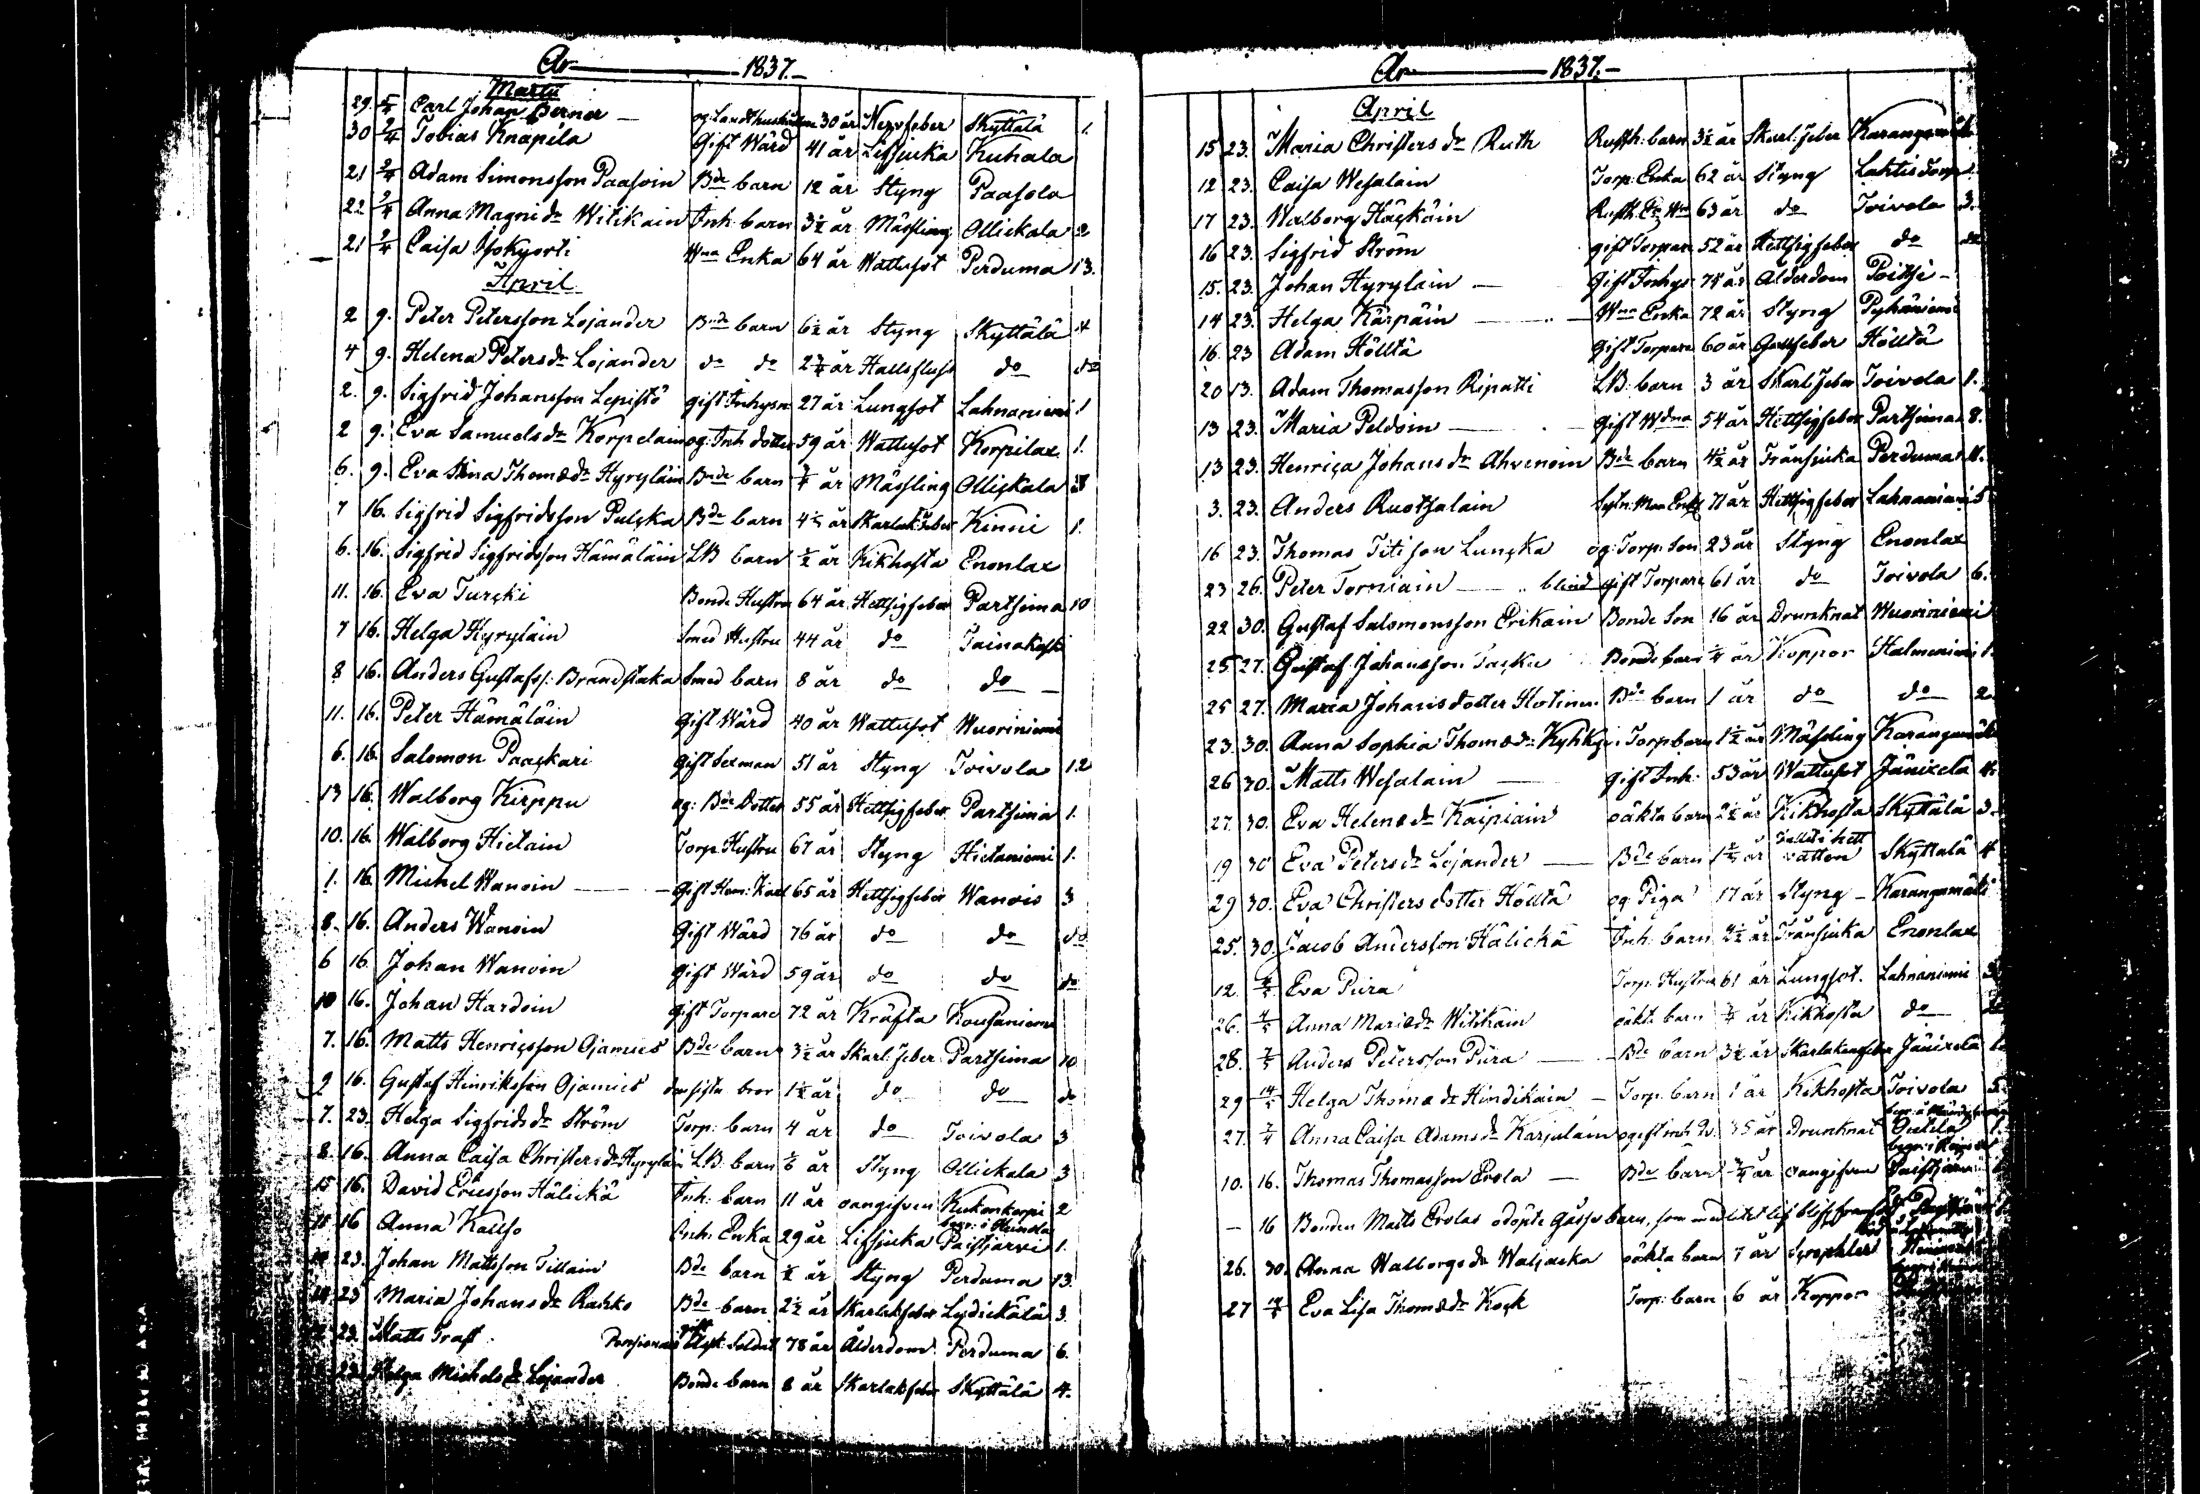 År 1837.
Martii
29. 5/4 Carl Johan Berner og: Landthushållare 30 år Nervfeber Skyttälä 1.
30 2/4 Tobias Knapila Gift Wärd 41 år Lifsjuka Kuhala
21 2/4 Adam Simonsson Paasoin Bde barn 12 år Styng Paasola
22 2/4 Anna Magni dr Witikain Inh: barn 3½ år Mässling Ollickala 2
21 2/4 Caisa Isokyosti Wna Enka 64 år Wattusot Perduma 13.
April
2 9. Peter Petersson Lojander Bde barn 6½ år Styng Skyttälä 4
4 9. Helena Peters dr Lojander do do 2¼ år Hallsfluss do do
2. 9. Sigfrid Johansson Lepistö gift Inhyse 27 år Lungsot Lahnaniemi 1
2 9. Eva Samuels dr Korpelain og: Inh dotter 59 år Wattusot Korpilax 1.
6. 9. Eva Stina Thomæ dr Hyryläin Bnde barn ¾ år Mässling Ollickala 3
7 16. Sigfrid Sigfridsson Pulcka Bde barn 4½ år Skarlak feber Kinni 1.
6. 16. Sigfrid Sigfridsson Hämäläin LB barn ½ år Kikhosta Enonlax
11. 16. Eva Turcki Bonde Hustru 64 år Hettsigfeber Partsima 10
7 16. Helga Hyryläin Smed Hustru 44 år do Tainakoski
8 16. Anders Gustafs: Brandstaka Smed barn 8 år do do
11. 16. Peter Hämäläin Gift Wärd 40 år Wattusot Wuoriniemi
6. 16. Salomon Paackari Gift Sexman 51 år Styng Toivola 12
13 16. Walborg Kirppu og: Bde Dotter 55 år Hettsigfeber Partsima 1.
10. 16. Walborg Hietain Torp Hustru 67 år Styng Hietaniemi 1.
1. 16. Michel Wanoin Gift Hem: Karl 65 år Hettsigfeber Wanois 3
8. 16. Anders Wanoin Gift Wärd 76 år do do do
6 16 Johan Wanoin Gift Wärd 59 år do do do
10 16. Johan Hardoin gift Torpare 72 år Kräfta Kousaniemi
7. 16. Matts Henricsson Ojamies Bde barn 3½ år Skarl: feber Partsima 10
9 16. Gustaf Hinriksson Ojamies den sista bror 1½ år do do do
7. 23. Helga Sigfrids dr Ström Torp: barn 4 år do Toivola 3
8. 16. Anna Caisa Christers dr Hyryläin LB barn år Styng Ollickala 3
15 16. David Ericsson Hälickä Inh: barn 11 år oangifven Kukonkorpi 2
16 Anna Kallso Inh: Enka 29 år Lifsjuka begr: i Heinola Paistjärvi 1.
23. Johan Mattsson Tillain Bde barn ½ år Styng Perduma 13.
23 Maria Johans dr Rahko Bde barn 2½ år Skarlakfeber Lydickälä 3.
23. Matts Traft Pensionerad gift Afsk: Soldat 78 år Ålderdom Perduma 6.
23. Helga Michels dr Lojander Bonde barn 8 år Skarlakfeber Skyttälä 4.
År 1837.
April
15 23. Maria Christers dr Ruth Rusth: barn 3½ år Skarl: feber Karangamäki
12 23. Caisa Wesalain Torp: Enka 62 år Styng Lahtis Torp
17 23. Walborg Häckäin Rusth: 63 år do Toivola 3.
16 23. Sigfrid Ström gift Torpare 52 år Hettsigfeber do do
15. 23. Johan Hyryläin Gift Inhys 74 år Ålderdom Poitsi
14 23. Helga Kärpäin Wna Enka 72 år Styng Pyhäniemi
16. 23 Adam Hölltä Gift Torpare 60 år Gallfeber Hölltä
20 13. Adam Thomasson Ripatti LB: barn 3 år Skarl: feber Toivola 1.
13 23. Maria Peldoin Gift Wdna 54 år Hettsigfeber Partsima 8.
13 23. Henrica Johans dr Ahvenoin Bde barn 4½ år Trånsjuka Perduma 11.
3. 23. Anders Ruotsalain 71 år Hettsigfeber Lahnaniemi 5
16 23. Thomas Titi son Luncka og: Torp: Son 23 år Styng Enonlax
23 26. Peter Torniain blind gift Torpare 61 år do Toivola 6.
22 30. Gustaf Salomonsson Erikain Bonde Son 16 år Drunknat Wuoriniemi
25 27. Gustaf Johansson Tacku Bonde barn ¼ år Koppor Halmeniemi 1.
25 27. Maria Johans dotter Hotinen Bde barn 1 år do do 2.
23. 30. Anna Sophia Thomæ dr Kyhky: Torp barn 1½ år Mässling Karangamäki
26 30. Matts Wesalain gift Inh: 53 år Wattusot Jänixelä 4.
27. 30. Eva Helenæ dr Kaipiain oäkta barn 2½ år Kikhosta Skyttälä 3.
19 30 Eva Peters dr Lojander Bde barn 1¾ år Fallit i hett vatten Skyttälä 4
29 30. Eva Christers dotter Hölltä og Piga 17 år Styng Karangamäki
25. 30. Jacob Andersson Hälickä Inh: barn 4½ år Trånsjuka Enonlax
12. Eva Pura Torp: Hustru 61 år Lungsot. Lahnaniemi 3
26. Anna Mariæ dr Witikain oäkt: barn ¾ år Kikhosta do do
28. 7/5 Anders Petersson Pura Bde barn 3½ år Skarlakansfeber Jänixelä
29 14/5 Helga Thomæ dr Hindikain Torp: barn 1 år Kikhosta Toivola 5.
27. Anna Caisa Adams dr Karjalain ogift inh 35 år Drunknat Outtila 1.
10. 16. Thomas Thomasson Erola Bde barn ¾ år oangifven Paistjärvi
– 16 Bonden Matts Erolas odöpte Gosse barn, som med litet lif blef framfödt
26. 30. Anna Walborgs dr Waljacka oäkta barn 7 år
27 14/5 Eva Lisa Thomæ dr Kock Torp: barn 6 år Koppor